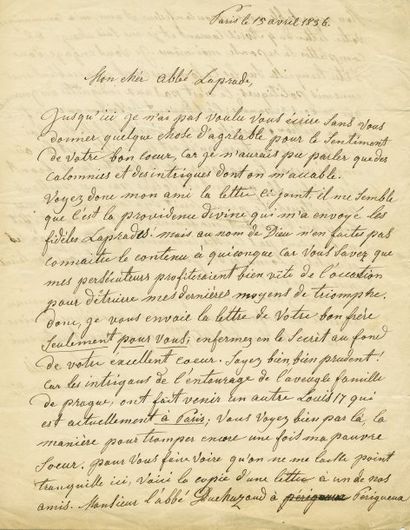 Paris le 15 avril 1836.
Mon cher abbé Laprade,
Jusqu'ici je n'ai pas voulu vous écrire sans vous
donner quelque chose d'agréable pour le sentiment
de votre bon coeur, car je n'aurais pu parler que des
calomnies et des intrigues dont on m'accable.
Voyez donc mon ami la lettre ci joint, il me semble
que c'est la providence divine qui m'a envoyé les
fidèles Laprades: mais au nom de Dieu n'en faites pas
connaitre le contenu à quiconque car vous savez que
mes persécuteurs profiteraient bien vite de l'occasion
pour détruire mes dernières moyens de triomphe.
donc, je vous envoie la lettre de votre bon frère
Seulement pour vous; enfermez en le Secret au fond
de votre excellent coeur. Soyez bien bien prudent!
car les intrigans de l'entourage de l'aveugle famille
de prague, ont fait venir un autre Louis 17 qui
est actuellement à Paris; vous voyez bien par là, la
manière pour tromper encore une fois ma pauvre
Soeur. pour vous faire voir qu'on ne me laisse point
tranquille ici, voici la copie d'une lettre à un de nos
amis. Monsieur l'abbé à Périgueux